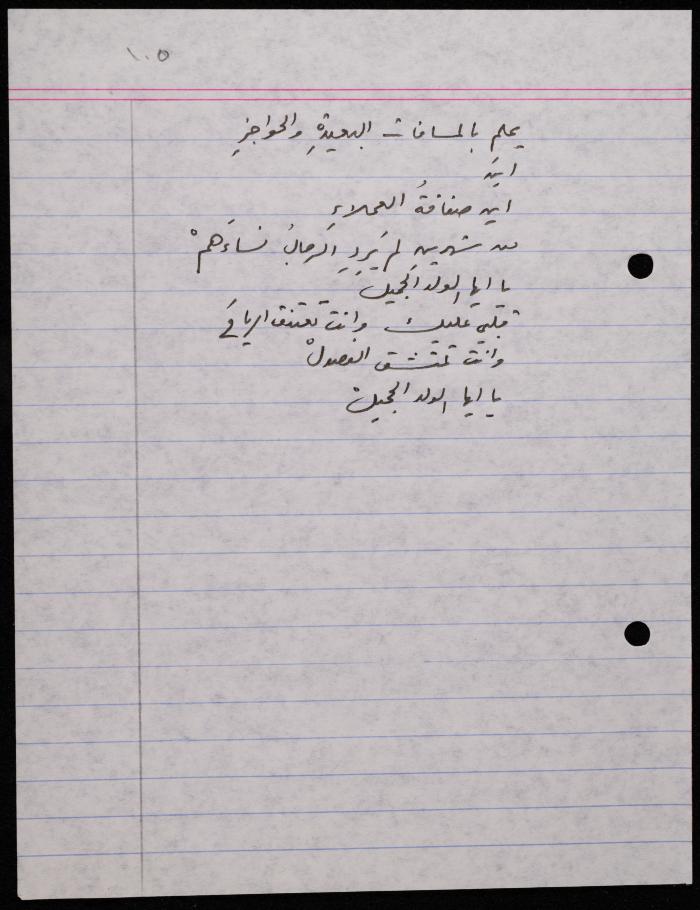 ١٠٥
يحلم بالمسافات البعيدةِ والحواجزِ
اين
اين صفاقةُ العملاءِ
من شهرين لم يَرِدِ الرجالُ نساءَهمْ
يا ايها الولد الجميل
قلبي عليك وانت تعتنق
وانت تمتشق الفصولْ
يا ايها الولد الجميلْ